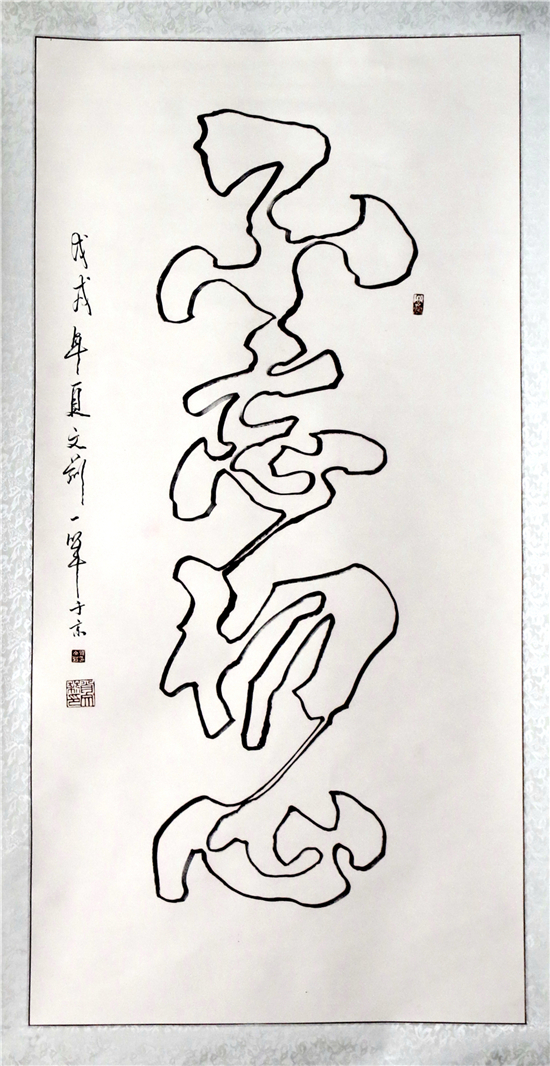 不忘初心
戊戌年夏文莉一笔于京